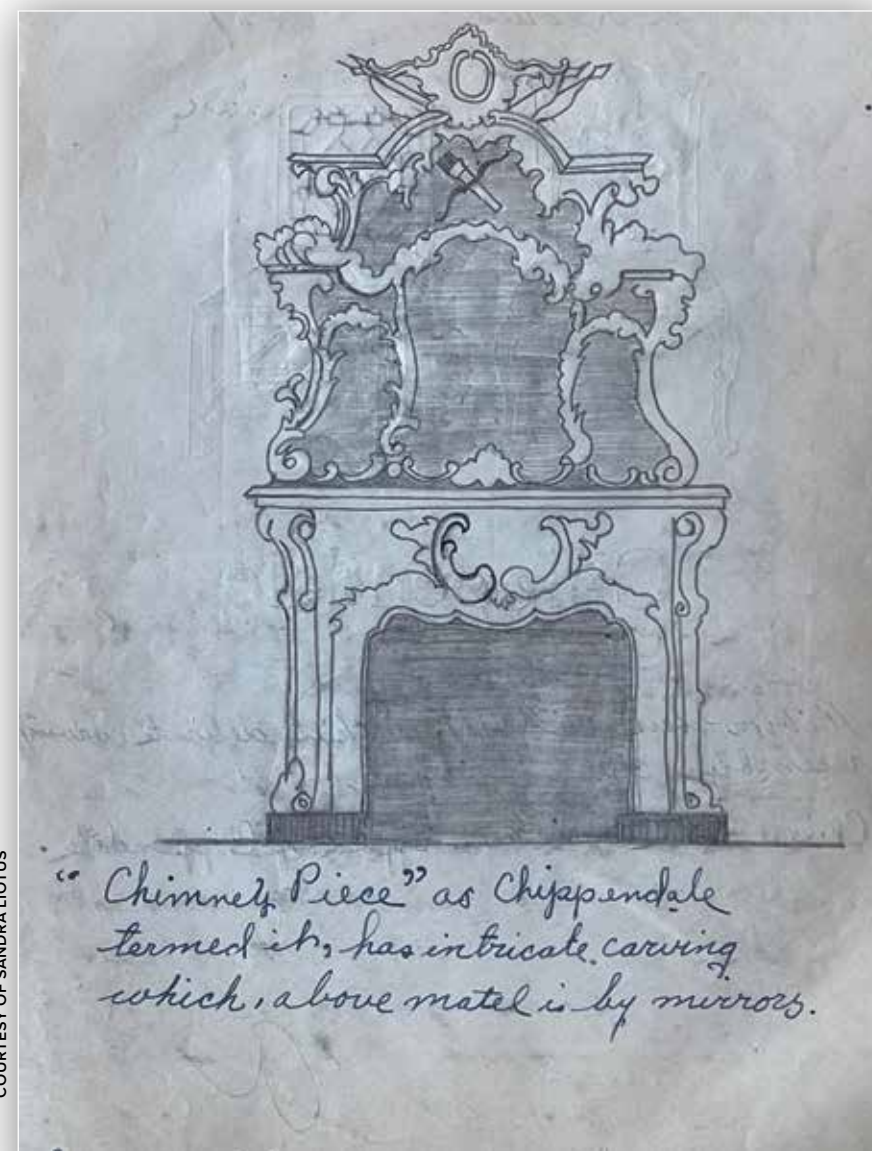 COURTESY OF SANDRA LIOTUS
“Chimney Piece” as Chippendale
termed it, has intricate carving
which, above matel is by mirrors.